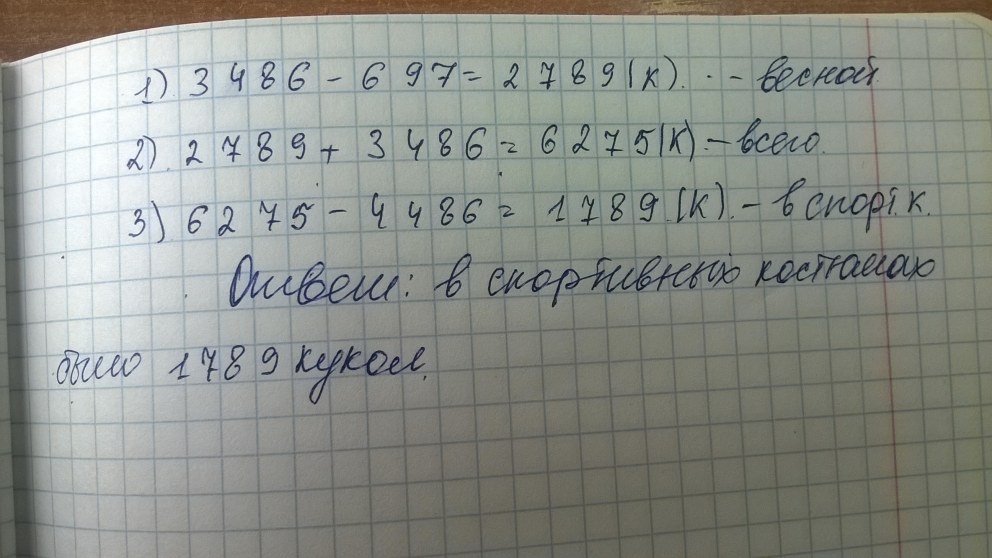 1) 3486 - 697 = 2789 (к). - весной
2) 2789 + 3486 = 6275 (к) - всего.
3) 6275 - 4486 = 1789 (к). - в спорт. к.
Ответ: в спортивных костюмах
было 1789 кукол.